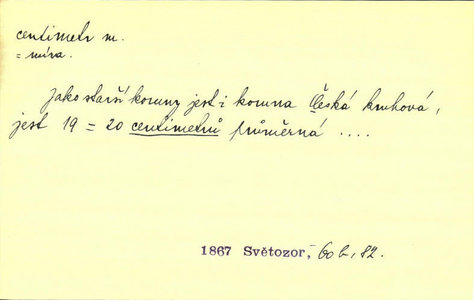 centimetr m.
= míra.
Jako starší koruny jest i koruna Česká kruhová,
jest 19 = 20 centimetrů průměrná ....
1867 Světozor, 60 b, 82.